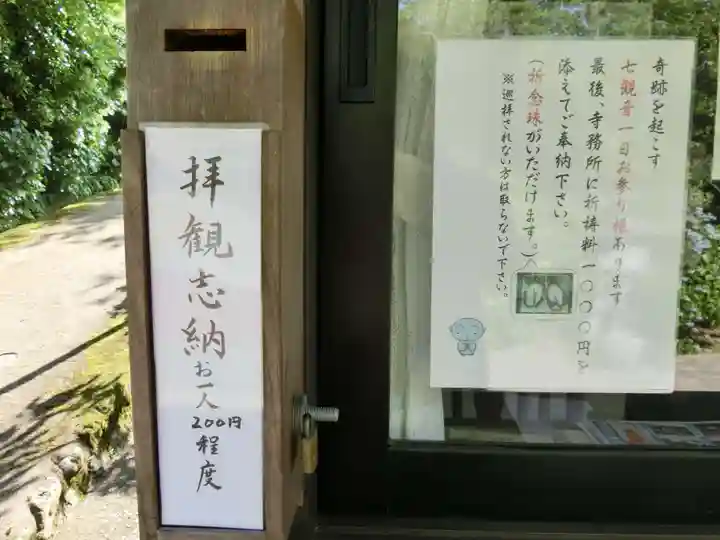 拝観志納
お一人
200円
程度
奇跡を起こす
七観音一日お参り様あります
最後、寺務所に祈祷料一〇〇〇円を
添えてご奉納下さい。
(祈念珠がいただけます。)
※巡拝されない方は取らないで下さい。